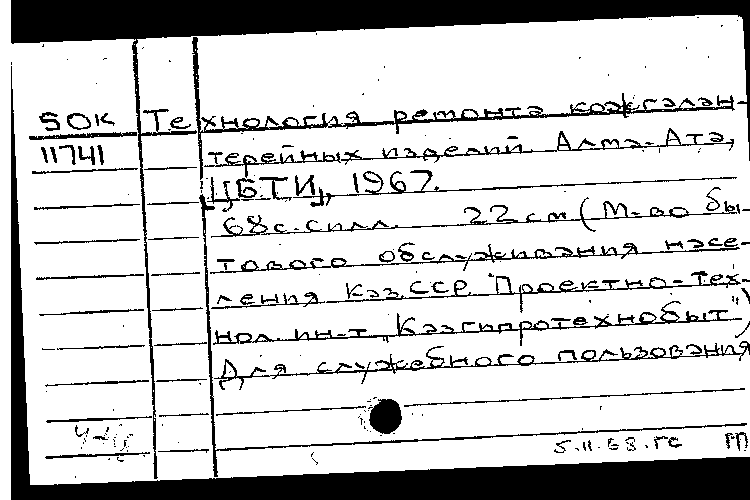 50К Технология ремонта кожгалан-
11741 терейных изделий. Алма-Ата,
[ЦБТИ], 1967.
68с. силл. 22 см (М-во бы-
тового обслуживания насе-
ления Каз.ССР. Проектно-тех-
нол. ин-т „Казгипротехнобыт")
Для служебного пользования
5.11.68.гс